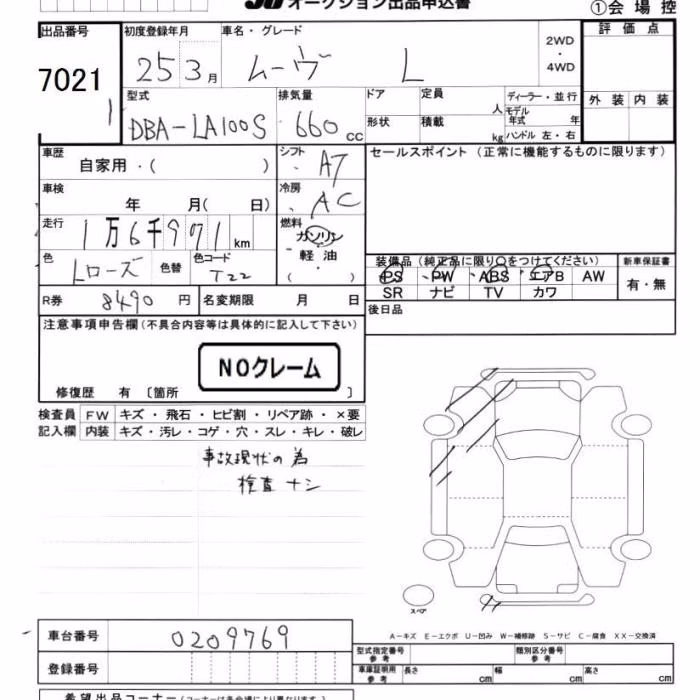 オークション出品申込書
①会場控
出品番号
7021
初度登録年月
25 3月
車名・グレード
ムーヴ L
2WD
・
4WD
評価点
外装 内装
型式
DBA-LA100S
排気量
660 cc
ドア
定員
人
形状
積載
kg
ディーラー・並行
モデル年式 年
ハンドル 左・右
車歴
自家用・( )
シフト
AT
セールスポイント(正常に機能するものに限ります)
車検
年 月( 日)
冷房
AC
走行
1万6千971 km
燃料
ガソリン
・
軽油
・
( )
色
Lローズ
色替
色コード
T22
装備品(純正品に限り○をつけてください)
PS PW ABS エアB AW
SR ナビ TV カワ
新車保証書
有・無
R券
8490 円
名変期限
月 日
後日品
注意事項申告欄(不具合内容等は具体的に記入して下さい)
NOクレーム
修復歴 有 〔箇所 〕
検査員
記入欄
FW キズ・飛石・ヒビ割・リペア跡・×要
内装 キズ・汚レ・コゲ・穴・スレ・キレ・破レ
事故現状の為
検査ナシ
スペア
A-キズ E-エクボ U-凹み W-補修跡 S-サビ C-腐食 XX-交換済
車台番号
0209769
登録番号
型式指定番号
参考
類別区分番号
参考
車庫証明用
参考
長さ cm
幅 cm
高さ cm
希望出品コーナー(コーナーは各会場により異なります)